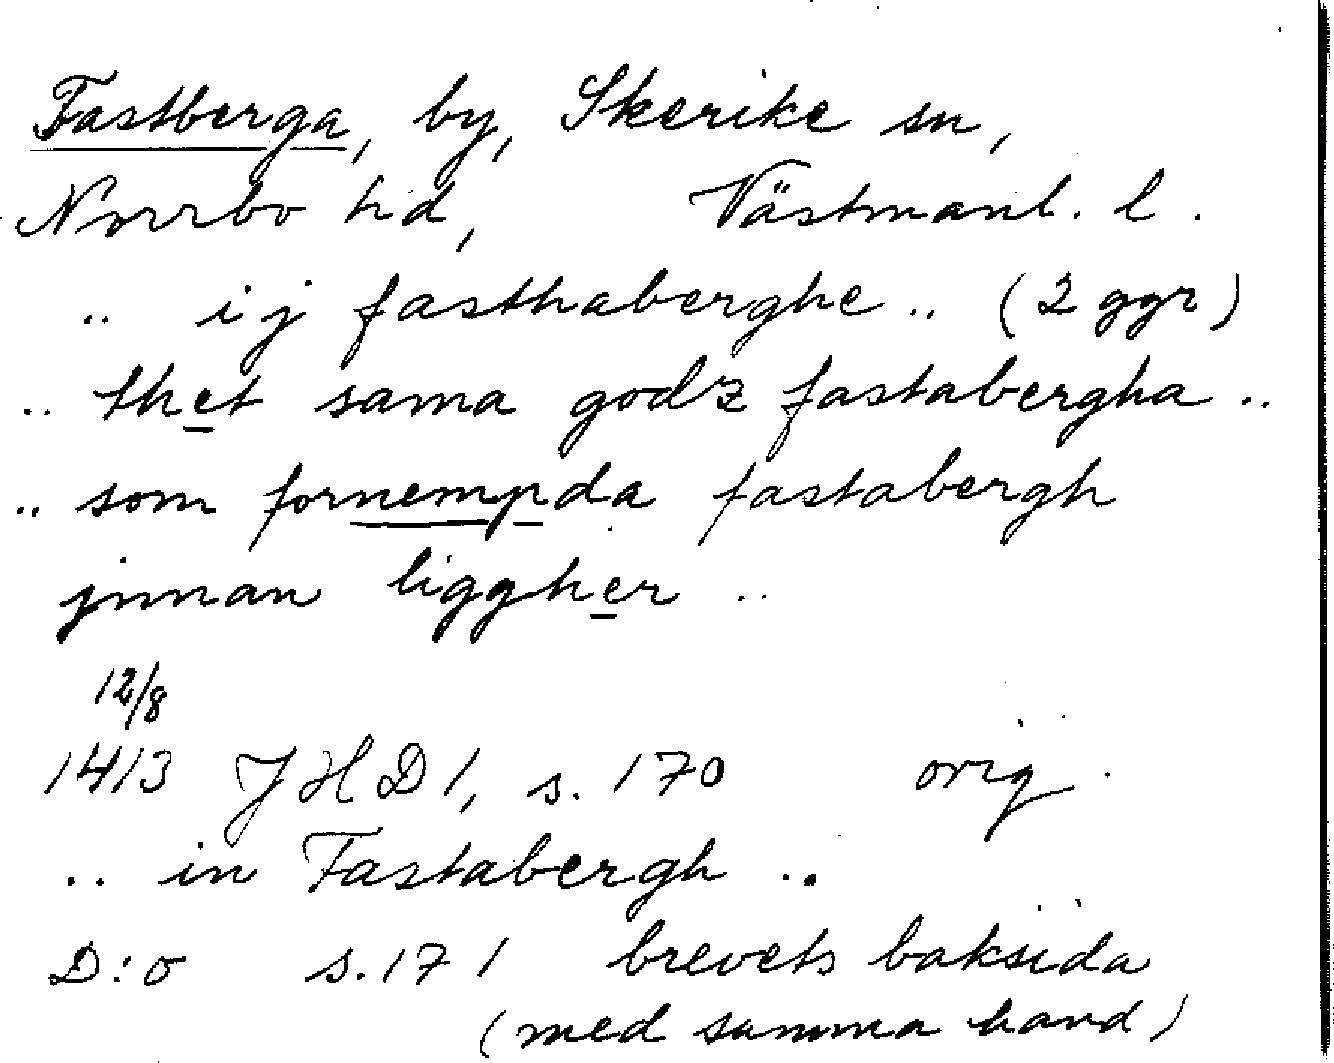 Fastberga, by, Skerike sn,
Norrbo hd, Västmanl. l.
.. ij fasthaberghe .. (2 ggr)
.. thet sama godz fastabergha ..
.. som fornempda fastabergh
jnnan liggher ..
12/8
1413 JHD 1, s. 170 orig.
.. in Fastabergh ..
D:o s. 171 brevets baksida
(med samma hand)